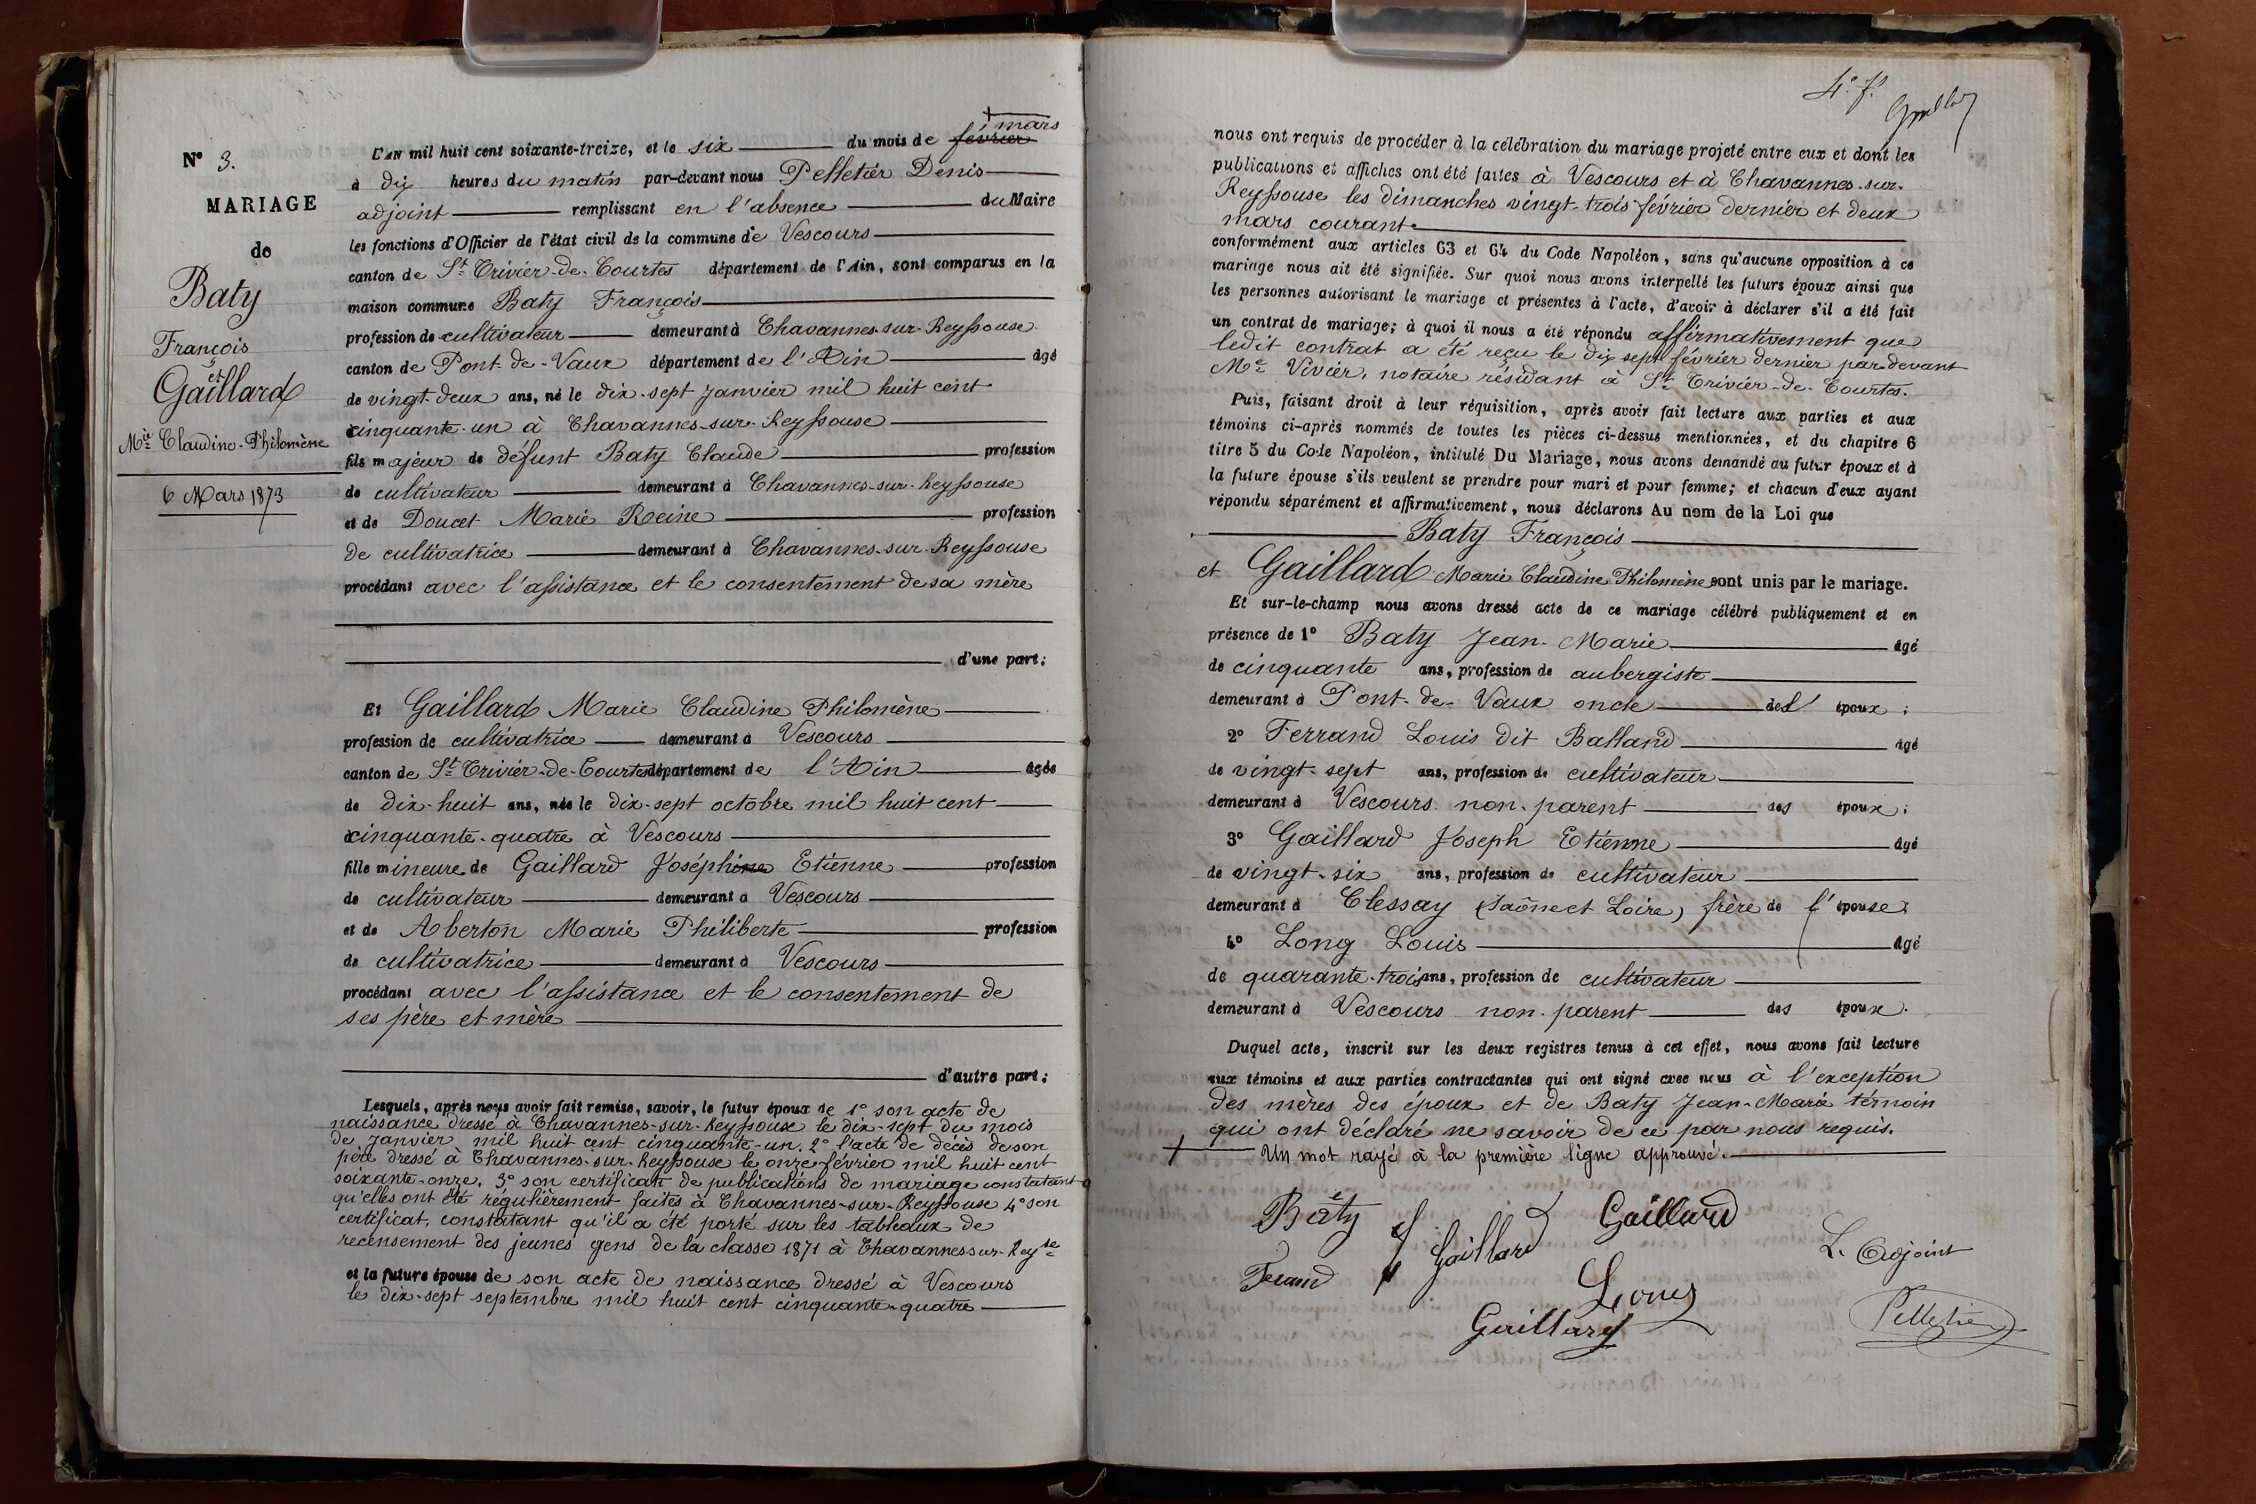 N° 3.
MARIAGE
de
Baty
François
et
Gaillard
Mie Claudine-Philomène
6 Mars 1873
mars
L'AN mil huit cent soixante-treize, et le six du mois de février
à dix heures du matin par-devant nous Pelletier Denis
adjoint remplissant en l'absence du Maire
les fonctions d'Officier de l'état civil de la commune de Vescours
canton de St Trivier-de-Courtes département de l'Ain, sont comparus en la
maison commune Baty François
profession de cultivateur demeurant à Chavannes-sur-Reyssouse
canton de Pont-de-Vaux département de l'Ain âgé
de vingt-deux ans, né le dix-sept janvier mil huit cent
cinquante-un à Chavannes-sur-Reyssouse
fils majeur de défunt Baty Claude profession
de cultivateur demeurant à Chavannes-sur-Reyssouse
et de Doucet Marie Reine profession
de cultivatrice demeurant à Chavannes-sur-Reyssouse
procédant avec l'assistance et le consentement de sa mère
d'une part;
Et Gaillard Marie Claudine Philomène
profession de cultivatrice demeurant à Vescours
canton de St Trivier-de-Courtes département de l'Ain âgée
de dix-huit ans, née le dix-sept octobre mil huit cent
cinquante-quatre à Vescours
fille mineure de Gaillard Joséphine Etienne profession
de cultivateur demeurant à Vescours
et de Aberton Marie Philiberte profession
de cultivatrice demeurant à Vescours
procédant avec l'assistance et le consentement de
ses père et mère
d'autre part;
Lesquels, après nous avoir fait remise, savoir, le futur époux de 1° son acte de
naissance dressé à Chavannes-sur-Reyssouse le dix-sept du mois
de janvier mil huit cent cinquante-un. 2° l'acte de décès de son
père dressé à Chavannes-sur-Reyssouse le onze février mil huit cent
soixante-onze. 3° son certificat de publications de mariage constatant
qu'elles ont été régulièrement faites à Chavannes-sur-Reyssouse 4° son
certificat, constatant qu'il a été porté sur les tableaux de
recensement des jeunes gens de la classe 1871 à Chavannes sur-Reyse
et la future épouse de son acte de naissance dressé à Vescours
le dix-sept septembre mil huit cent cinquante-quatre
4e f.
nous ont requis de procéder à la célébration du mariage projeté entre eux et dont les
publications et affiches ont été faites à Vescours et à Chavannes-sur-
Reyssouse les dimanches vingt-trois février dernier et deux
mars courant
conformément aux articles 63 et 64 du Code Napoléon, sans qu'aucune opposition à ce
mariage nous ait été signifiée. Sur quoi nous avons interpellé les futurs époux ainsi que
les personnes autorisant le mariage et présentes à l'acte, d'avoir à déclarer s'il a été fait
un contrat de mariage; à quoi il nous a été répondu affirmativement que
ledit contrat a été reçu le dix sept février dernier par-devant
Me Vivier, notaire résidant à St Trivier-de-Courtes.
Puis, faisant droit à leur réquisition, après avoir fait lecture aux parties et aux
témoins ci-après nommés de toutes les pièces ci-dessus mentionnées, et du chapitre 6
titre 5 du Code Napoléon, intitulé Du Mariage, nous avons demandé au futur époux et à
la future épouse s'ils veulent se prendre pour mari et pour femme; et chacun d'eux ayant
répondu séparément et affirmativement, nous déclarons Au nom de la Loi que
Baty François
et Gaillard Marie Claudine Philomène sont unis par le mariage.
Et sur-le-champ nous avons dressé acte de ce mariage célébré publiquement et en
présence de 1° Baty Jean-Marie âgé
de cinquante ans, profession de aubergiste
demeurant à Pont-de-Vaux oncle de l' époux;
2° Ferrand Louis dit Balland âgé
de vingt-sept ans, profession de cultivateur
demeurant à Vescours non-parent des époux;
3° Gaillard Joseph Etienne âgé
de vingt-six ans, profession de cultivateur
demeurant à Clessay (Saône et Loire) frère de l'épouse;
4° Long Louis âgé
de quarante-trois ans, profession de cultivateur
demeurant à Vescours non-parent des époux.
Duquel acte, inscrit sur les deux registres tenus à cet effet, nous avons fait lecture
aux témoins et aux parties contractantes qui ont signé avec nous à l'exception
des mères des époux et de Baty Jean-Marie témoin
qui ont déclaré ne savoir de ce par nous requis.
Un mot rayé à la première ligne approuvé.
Baty Gaillard Gaillard
L. Adjoint
Ferrand Long
Gaillard Pelletier